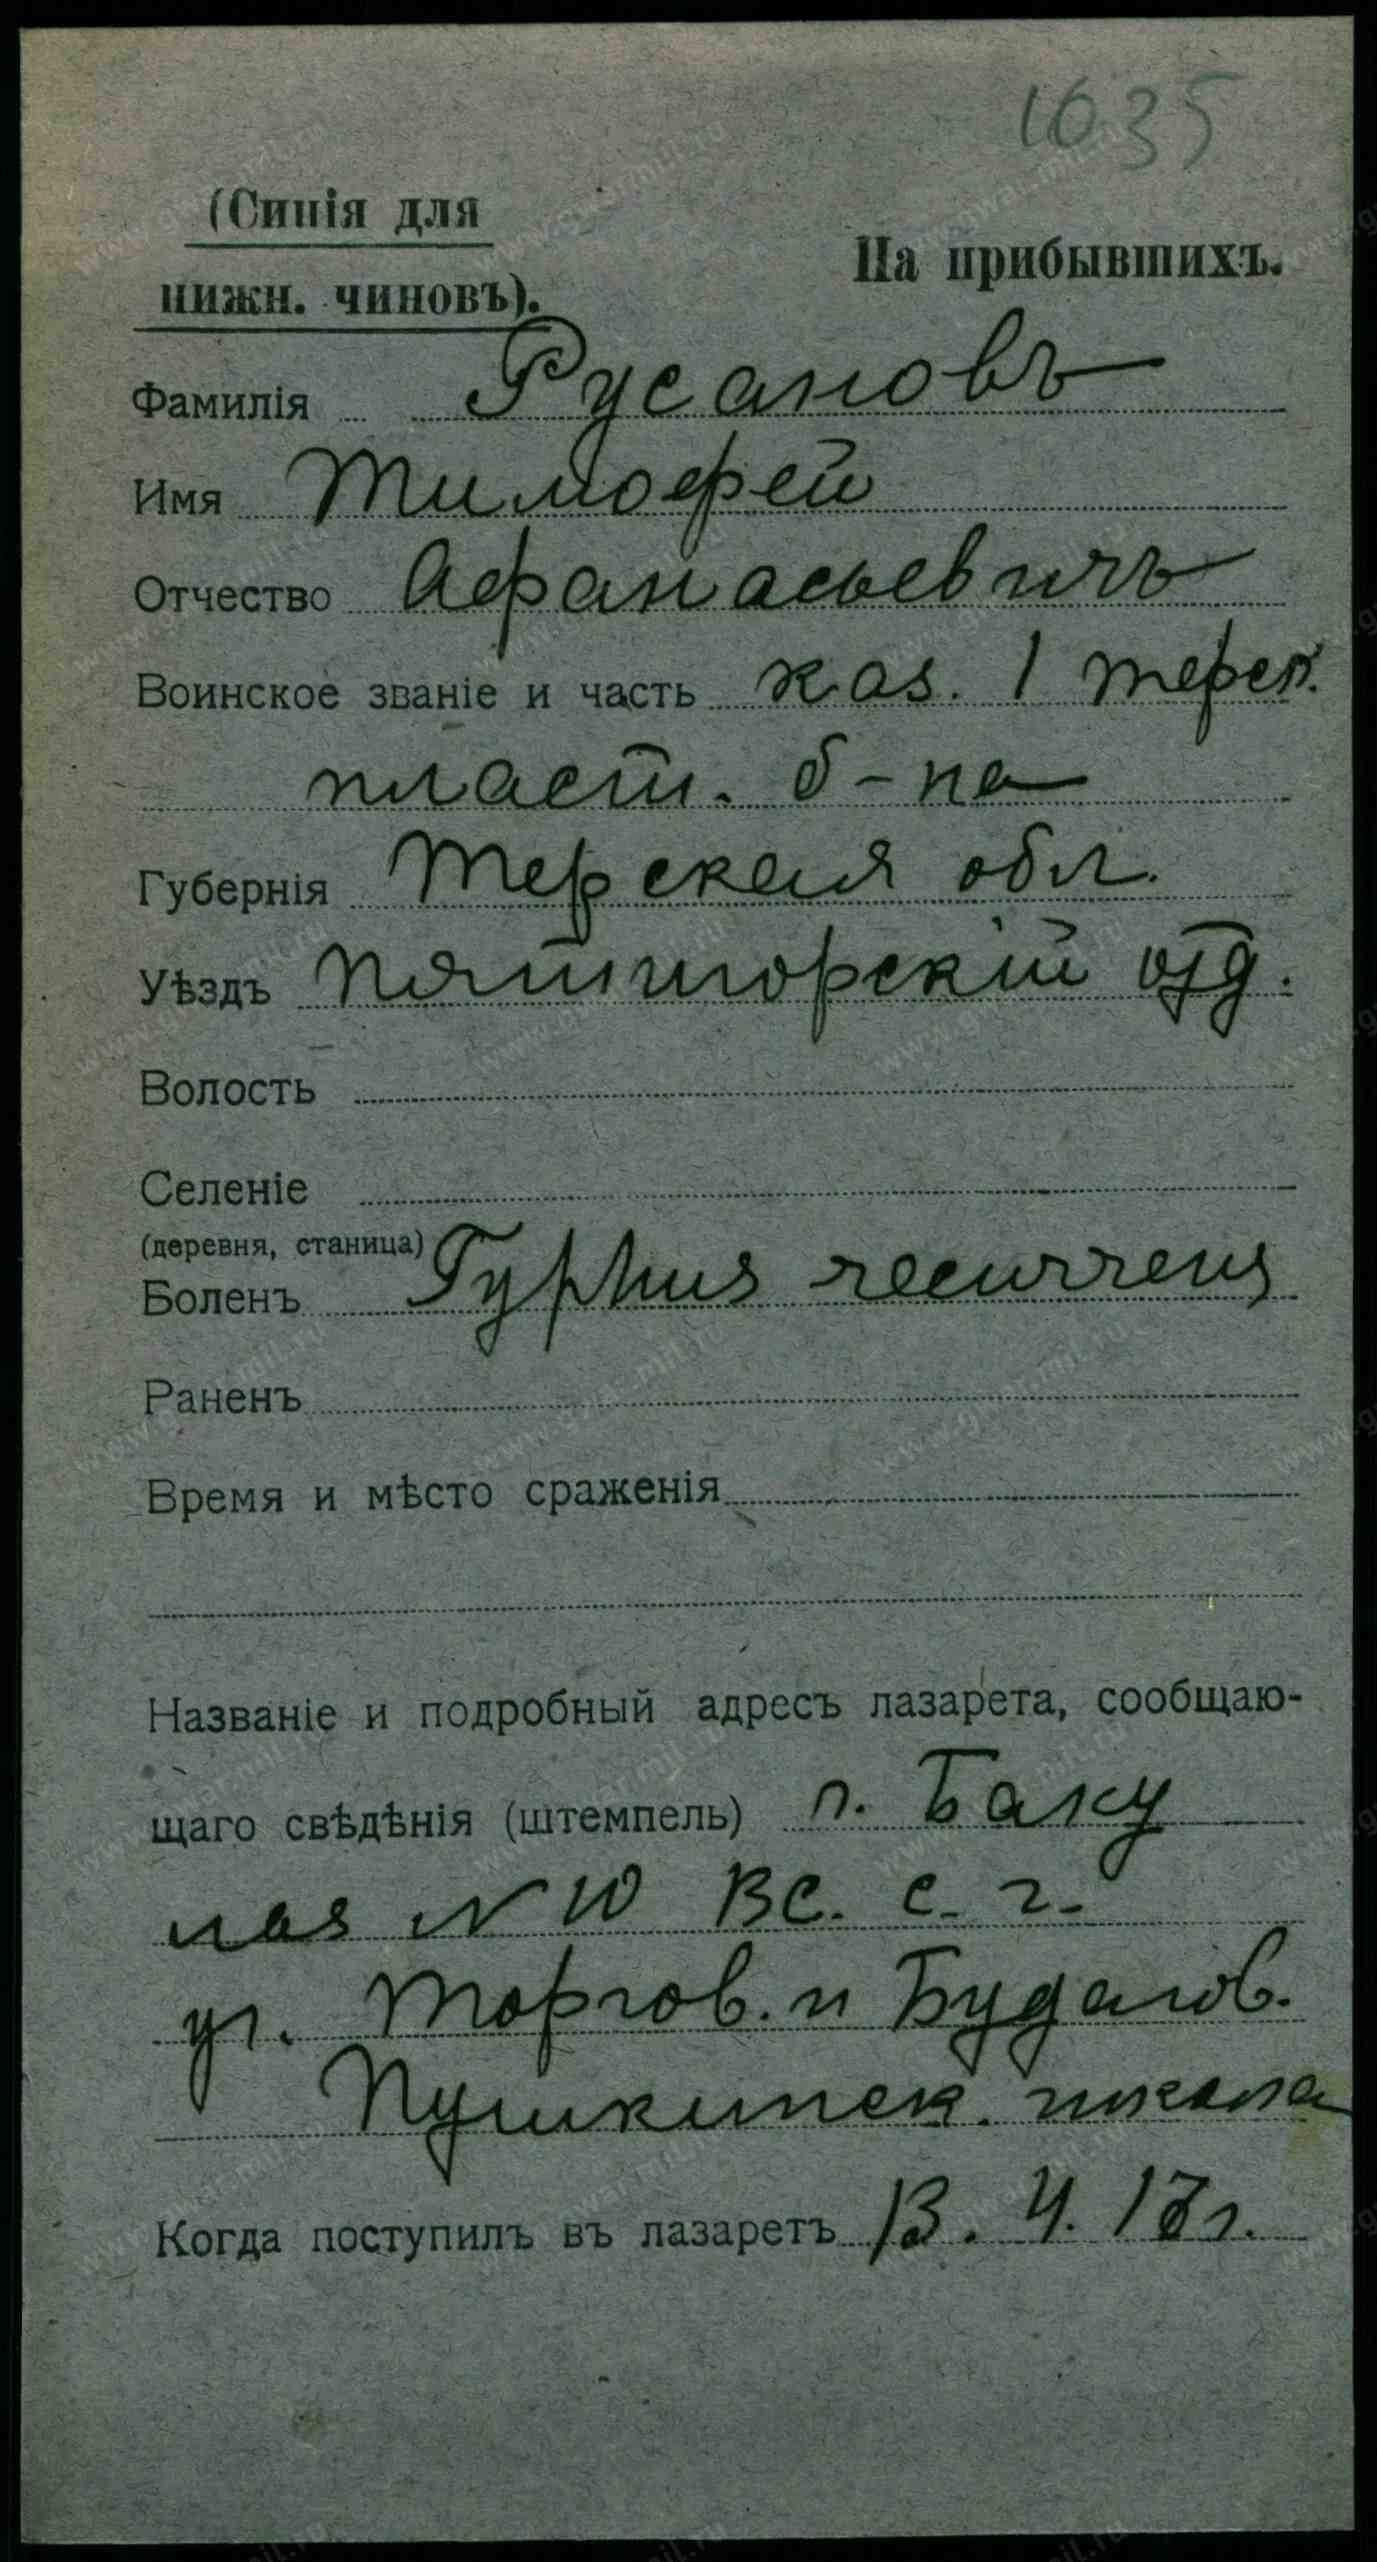 1635
(Синія для
нижн. чиновъ).
На прибывшихъ.
Фамилія Русановъ
Имя Тимофей
Отчество Афанасьевичъ
Воинское званіе и часть каз. 1 терск.
пласт. б-на
Губернія Терская обл.
Уѣздъ Пятигорскій отд.
Волость
Селеніе
(деревня, станица)
Боленъ Typhus recurrens
Раненъ
Время и мѣсто сраженія
Названіе и подробный адресъ лазарета, сообщаю-
щаго свѣдѣнія (штемпель) г. Баку
лаз N 10 Вс. с. г.
уг. Торгов. и Будагов.
Пушкинск. школа
Когда поступилъ въ лазаретъ 13. 4. 17 г.
www.gwar.mil.ru